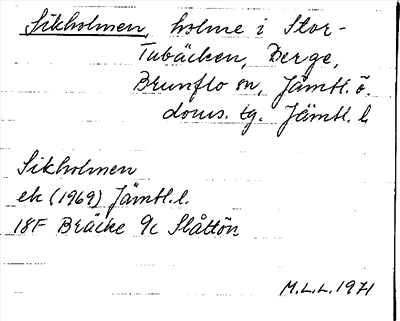 Sikholmen, holme i Stor-
Tubäcken, Berge,
Brunflo sn, Jämtl. ö.
doms. tg. Jämtl. l.
Sikholmen
ek (1969) Jämtl. l.
18F Bräcke 9c Slåttön
M.L.L. 1971